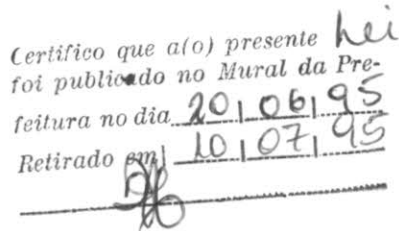 Certifico que a(o) presente Lei
foi publicado no Mural da Pre-
feitura no dia 20,06,95
Retirado em 10,07,95